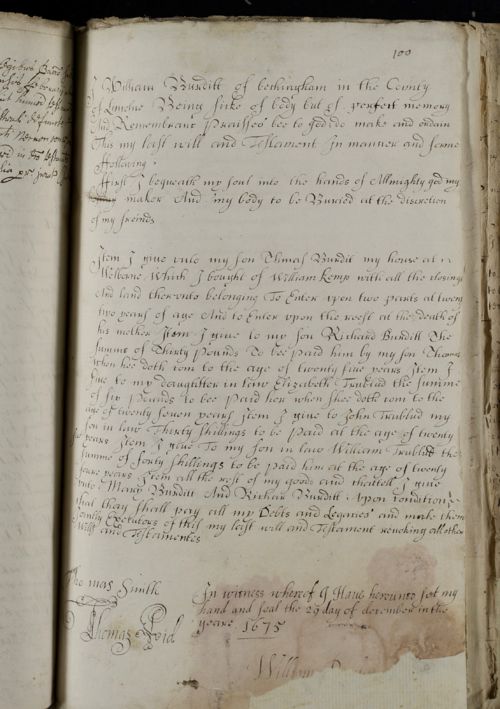 100
I William Burditt of beckingham in the County
of Lincolne Being sicke of body but of perfect memory
And Remembrant Praisses bee to god doe make and ordain
This my last will and Testament In manner and forme
Following
ffirst I bequeath my soul into the hands of Allmighty god my
maker And my body to be Buried at the discretion
of my freinds
Item I give unto my son Thomas Burditt my house at
Welborne Which I bought of William Kemp with all the closing
And land therunto belonging To Enter upon two parts at twenty
two years of age And to Enter upon the rest at the death of
his mother Item I give to my son Richard Burditt The
summe of Thirty Pounds To be Paid him by my son Thomas
when hee doth com to the age of twenty five years Item I
Give to my daughter in law Elizabeth Trublud the summe
of six Pounds to bee Paid her when shee doth com to the
age of twenty seven years Item I give to John Trublud my
son in law Thirty shillings to be paid at the age of twenty
years Item I give To my son in law William Trublud the
summe of forty shillings to be paid him at the age of twenty
years Item all the rest of my goods and chattell I give
unto Mary Burditt And Richar Burditt Upon condition
that they shall pay all my Debts and Legacies and make them
Joantly Executors of this my last will and Testament revoking all other
Wills and Testamentes
Thomas Smith
Thomas Reid
In witness wherof I Have hereunto set my
hand and seal the 29 day of december in the
yeare 1675
William